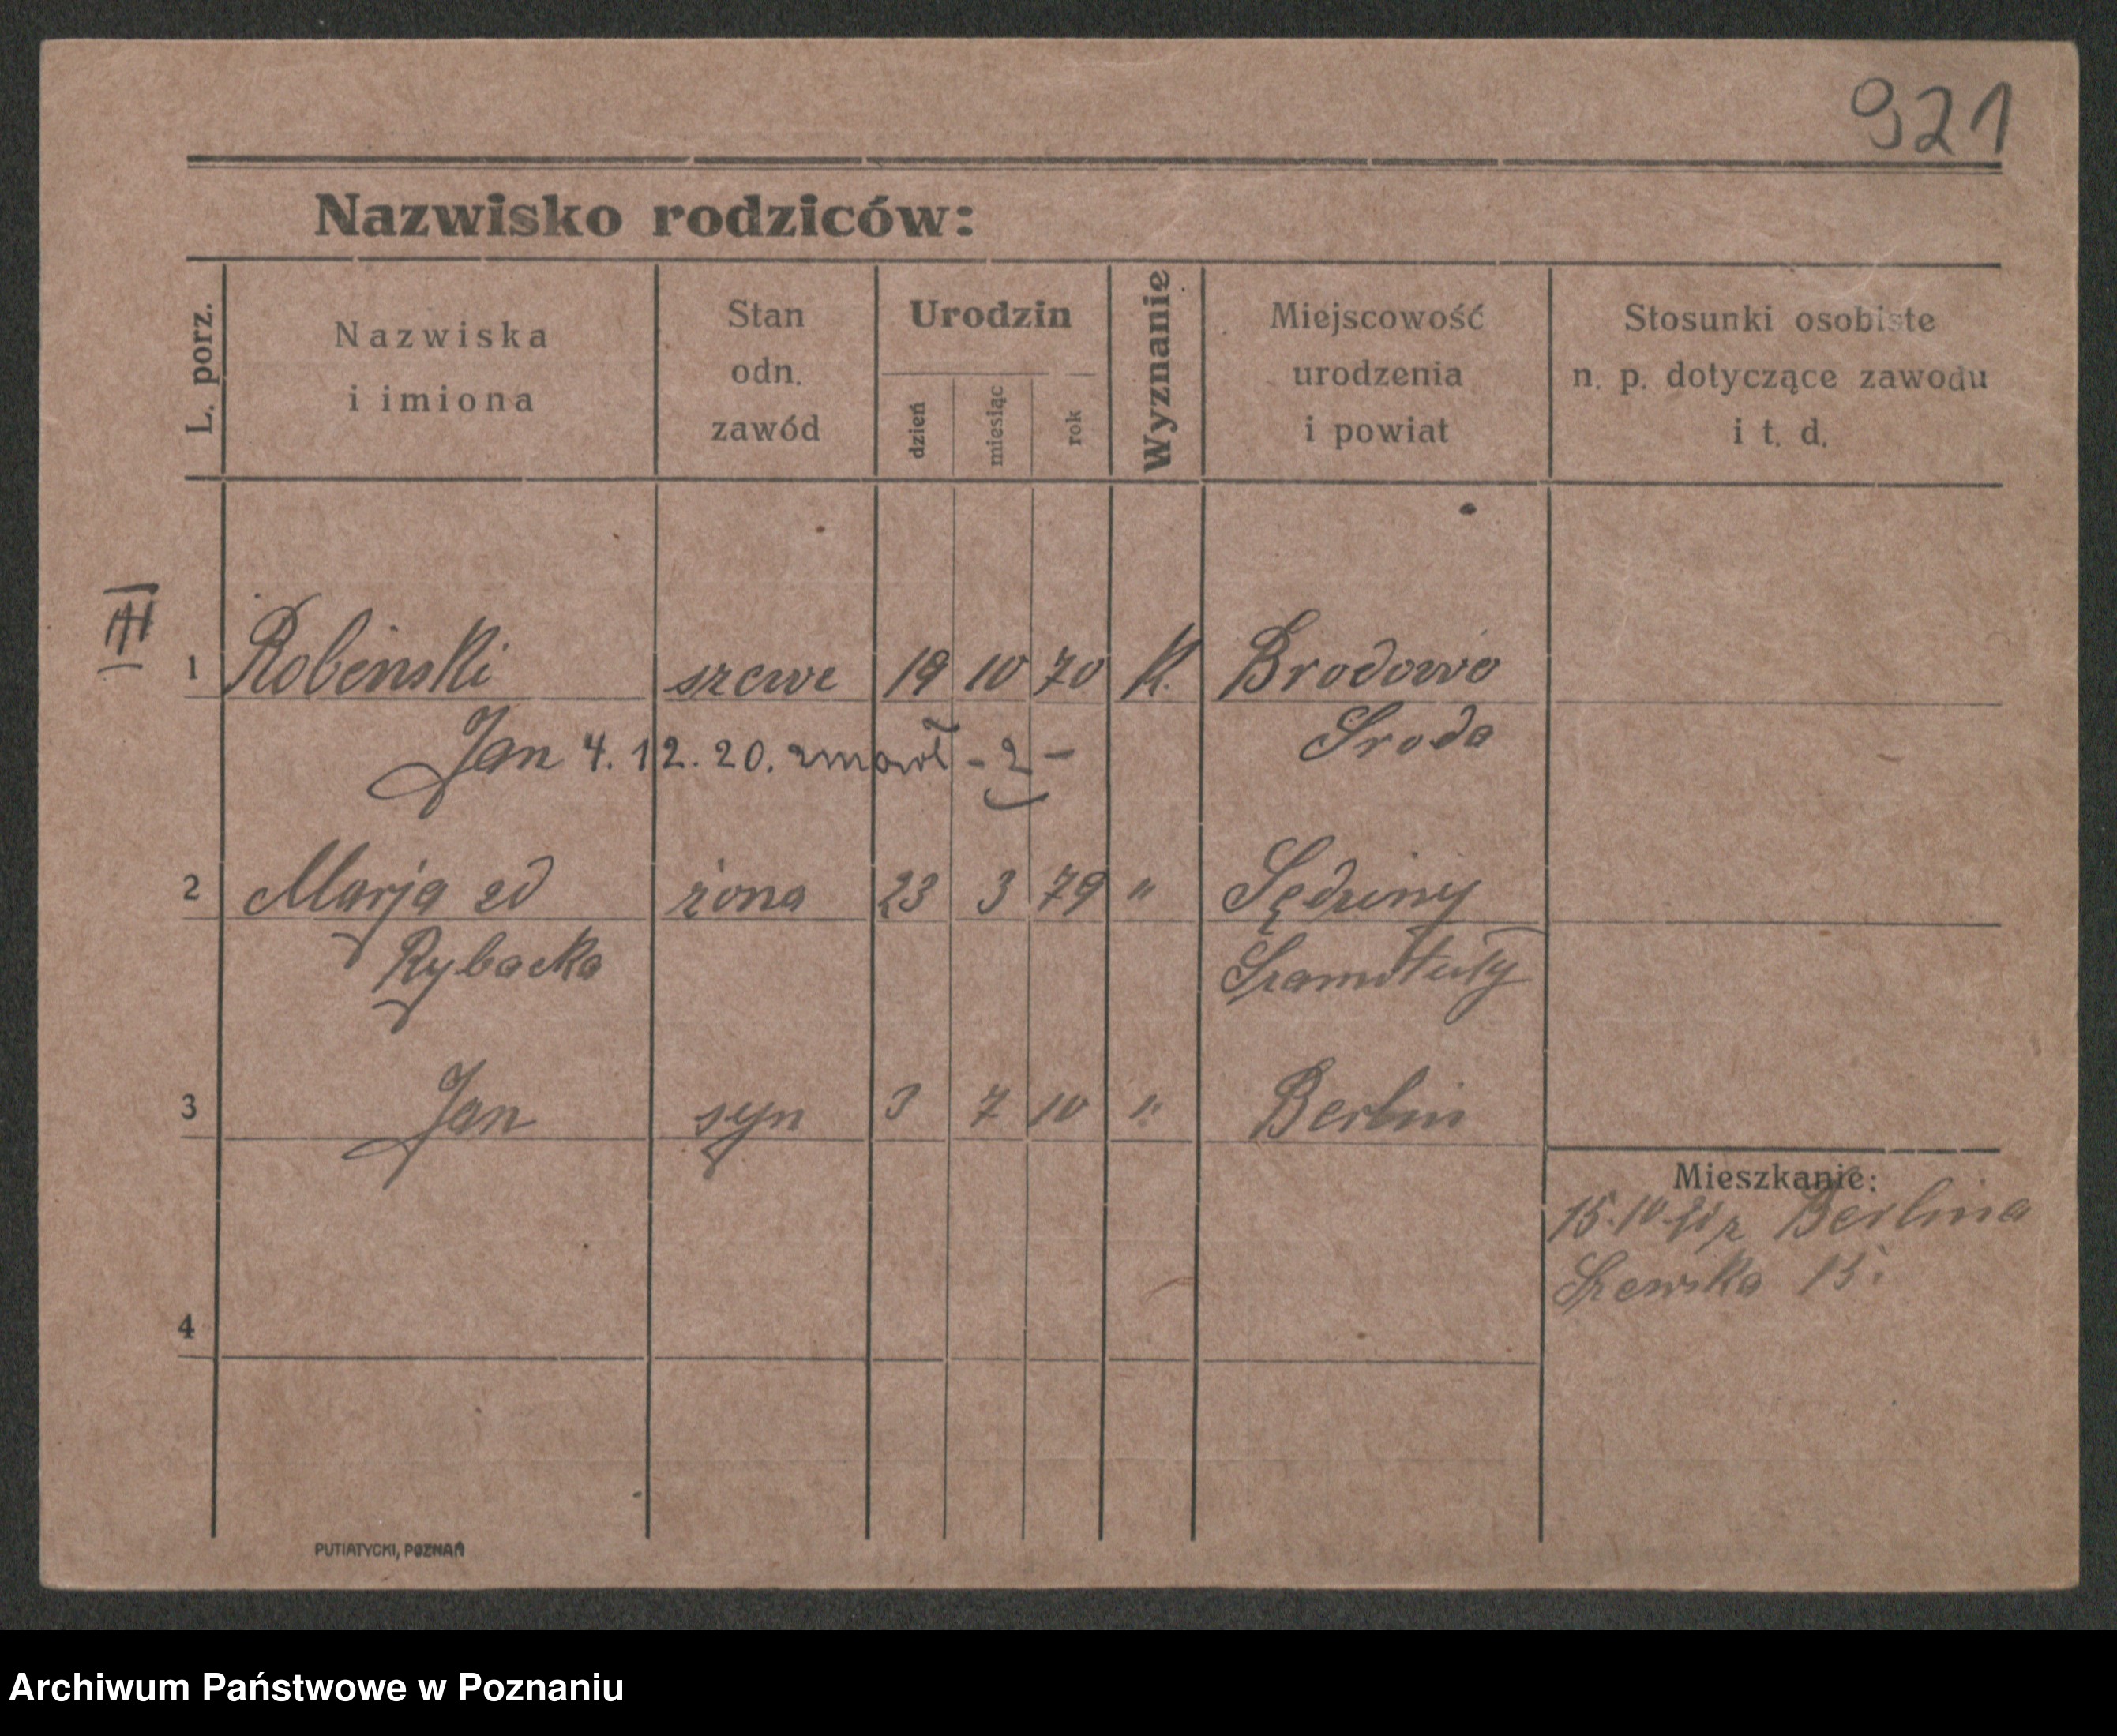 921
Nazwisko rodziców:
L. porz.
Nazwiska
i imiona
Stan
odn.
zawód
Urodzin
dzień
miesiąc
rok
Wyznanie
Miejscowość
urodzenia
i powiat
Stosunki osobiste
n. p. dotyczące zawodu
i t. d.
III
1 Robinski szewc 19 10 70 K. Brodowo
Jan 4. 12. 20. zmarł - 2 - Sroda
2 Marja zd żona 23 3 79 " Sędziny
Rybacka Szamotuły
3 Jan syn 3 7 10 " Berlin
Mieszkanie:
15.10. z Berlina
Szewska 15.
4
PUTIATYCKI, POZNAŃ
Archiwum Państwowe w Poznaniu